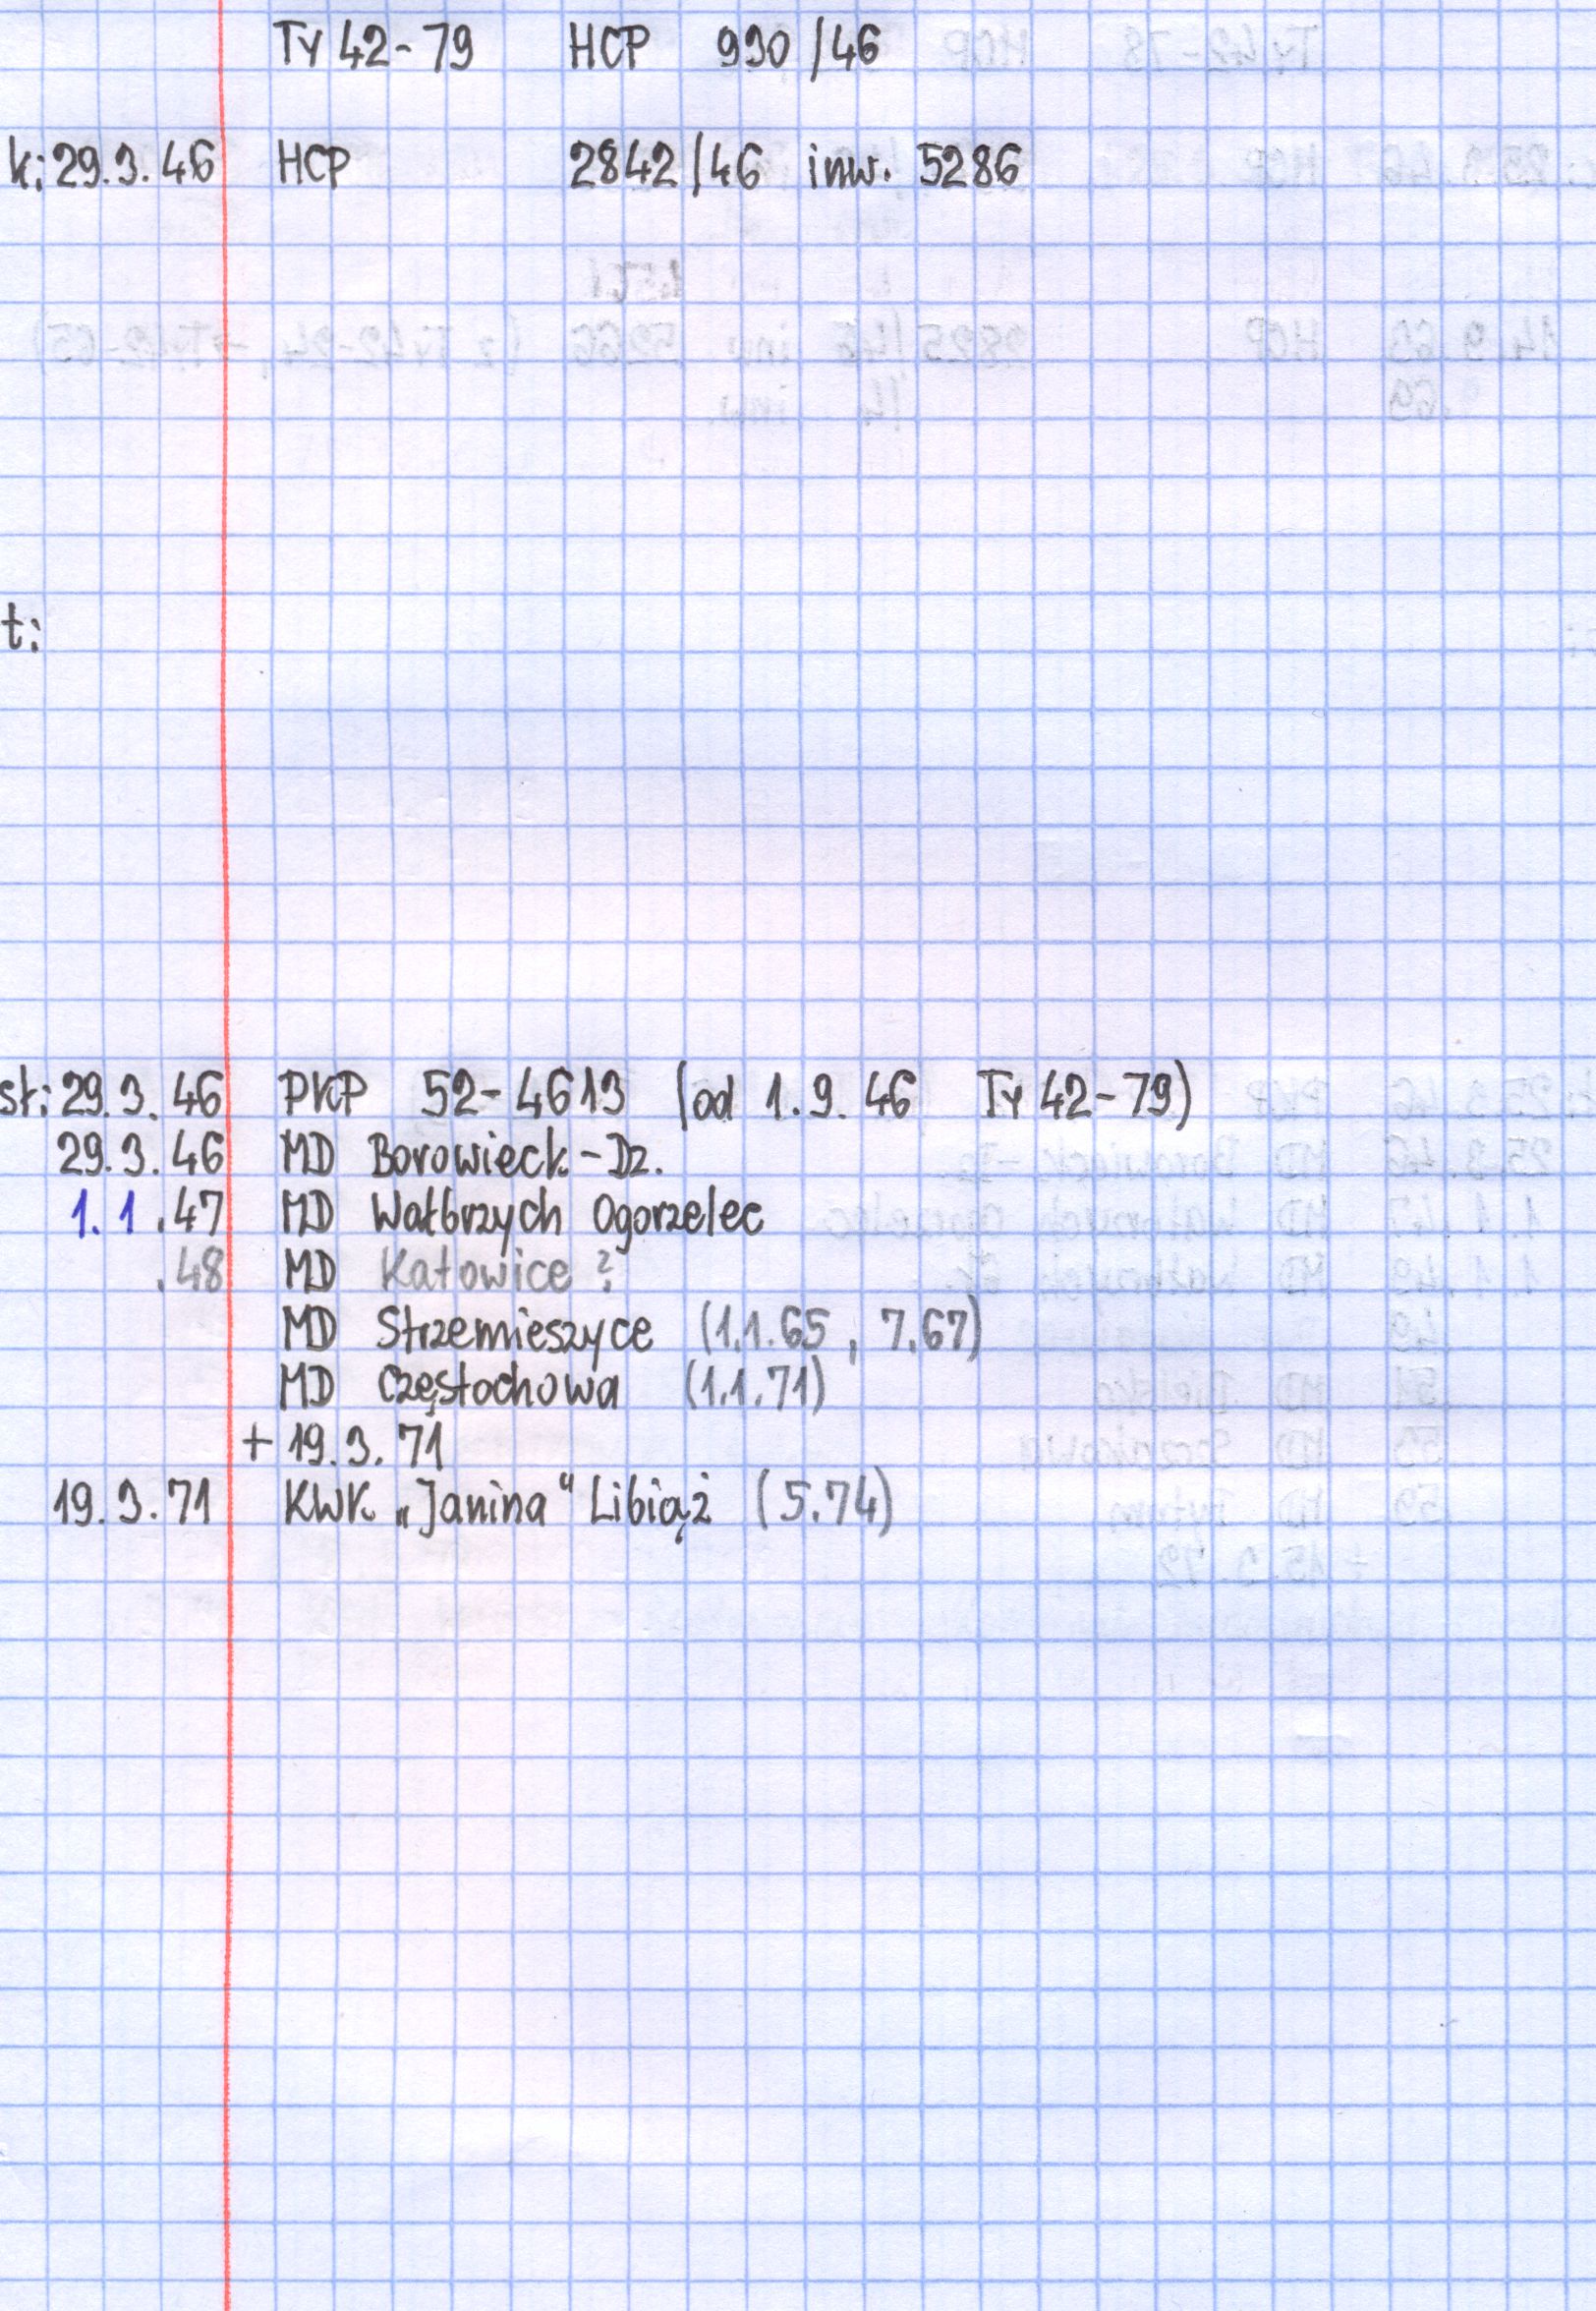 Ty 42-79 HCP 990/46
k: 29.3.46 HCP 2842/46 inw. 5286
t:
sł: 29.3.46 PKP 52-4613 (od 1.9.46 Ty 42-79)
29.3.46 MD Borowieck.-Dz.
1.1.47 MD Wałbrzych Ogorzelec
.48 MD Katowice ?
MD Strzemieszyce (1.1.65, 7.67)
MD Częstochowa (1.1.71)
+ 19.3.71
19.3.71 KWK „Janina“ Libiąż (5.74)